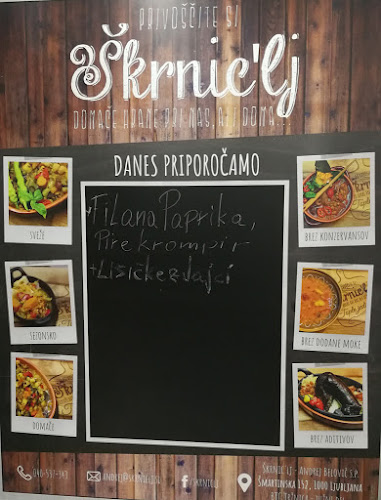 PRIVOŠČITE SI
Škrnic'lj
DOMAČE HRANE PRI NAS, ALI DOMA
DANES PRIPOROČAMO
+Filana Paprika,
Pire krompir
+Lisičke z Jajci
SVEŽE
SEZONSKO
DOMAČE
BREZ KONZERVANSOV
BREZ DODANE MOKE
BREZ ADITIVOV
/SKRNICLJ
ŠKRNIC'LJ - ANDREJ BELOVIČ S.P.
ŠMARTINSKA 152, 1000 LJUBLJANA